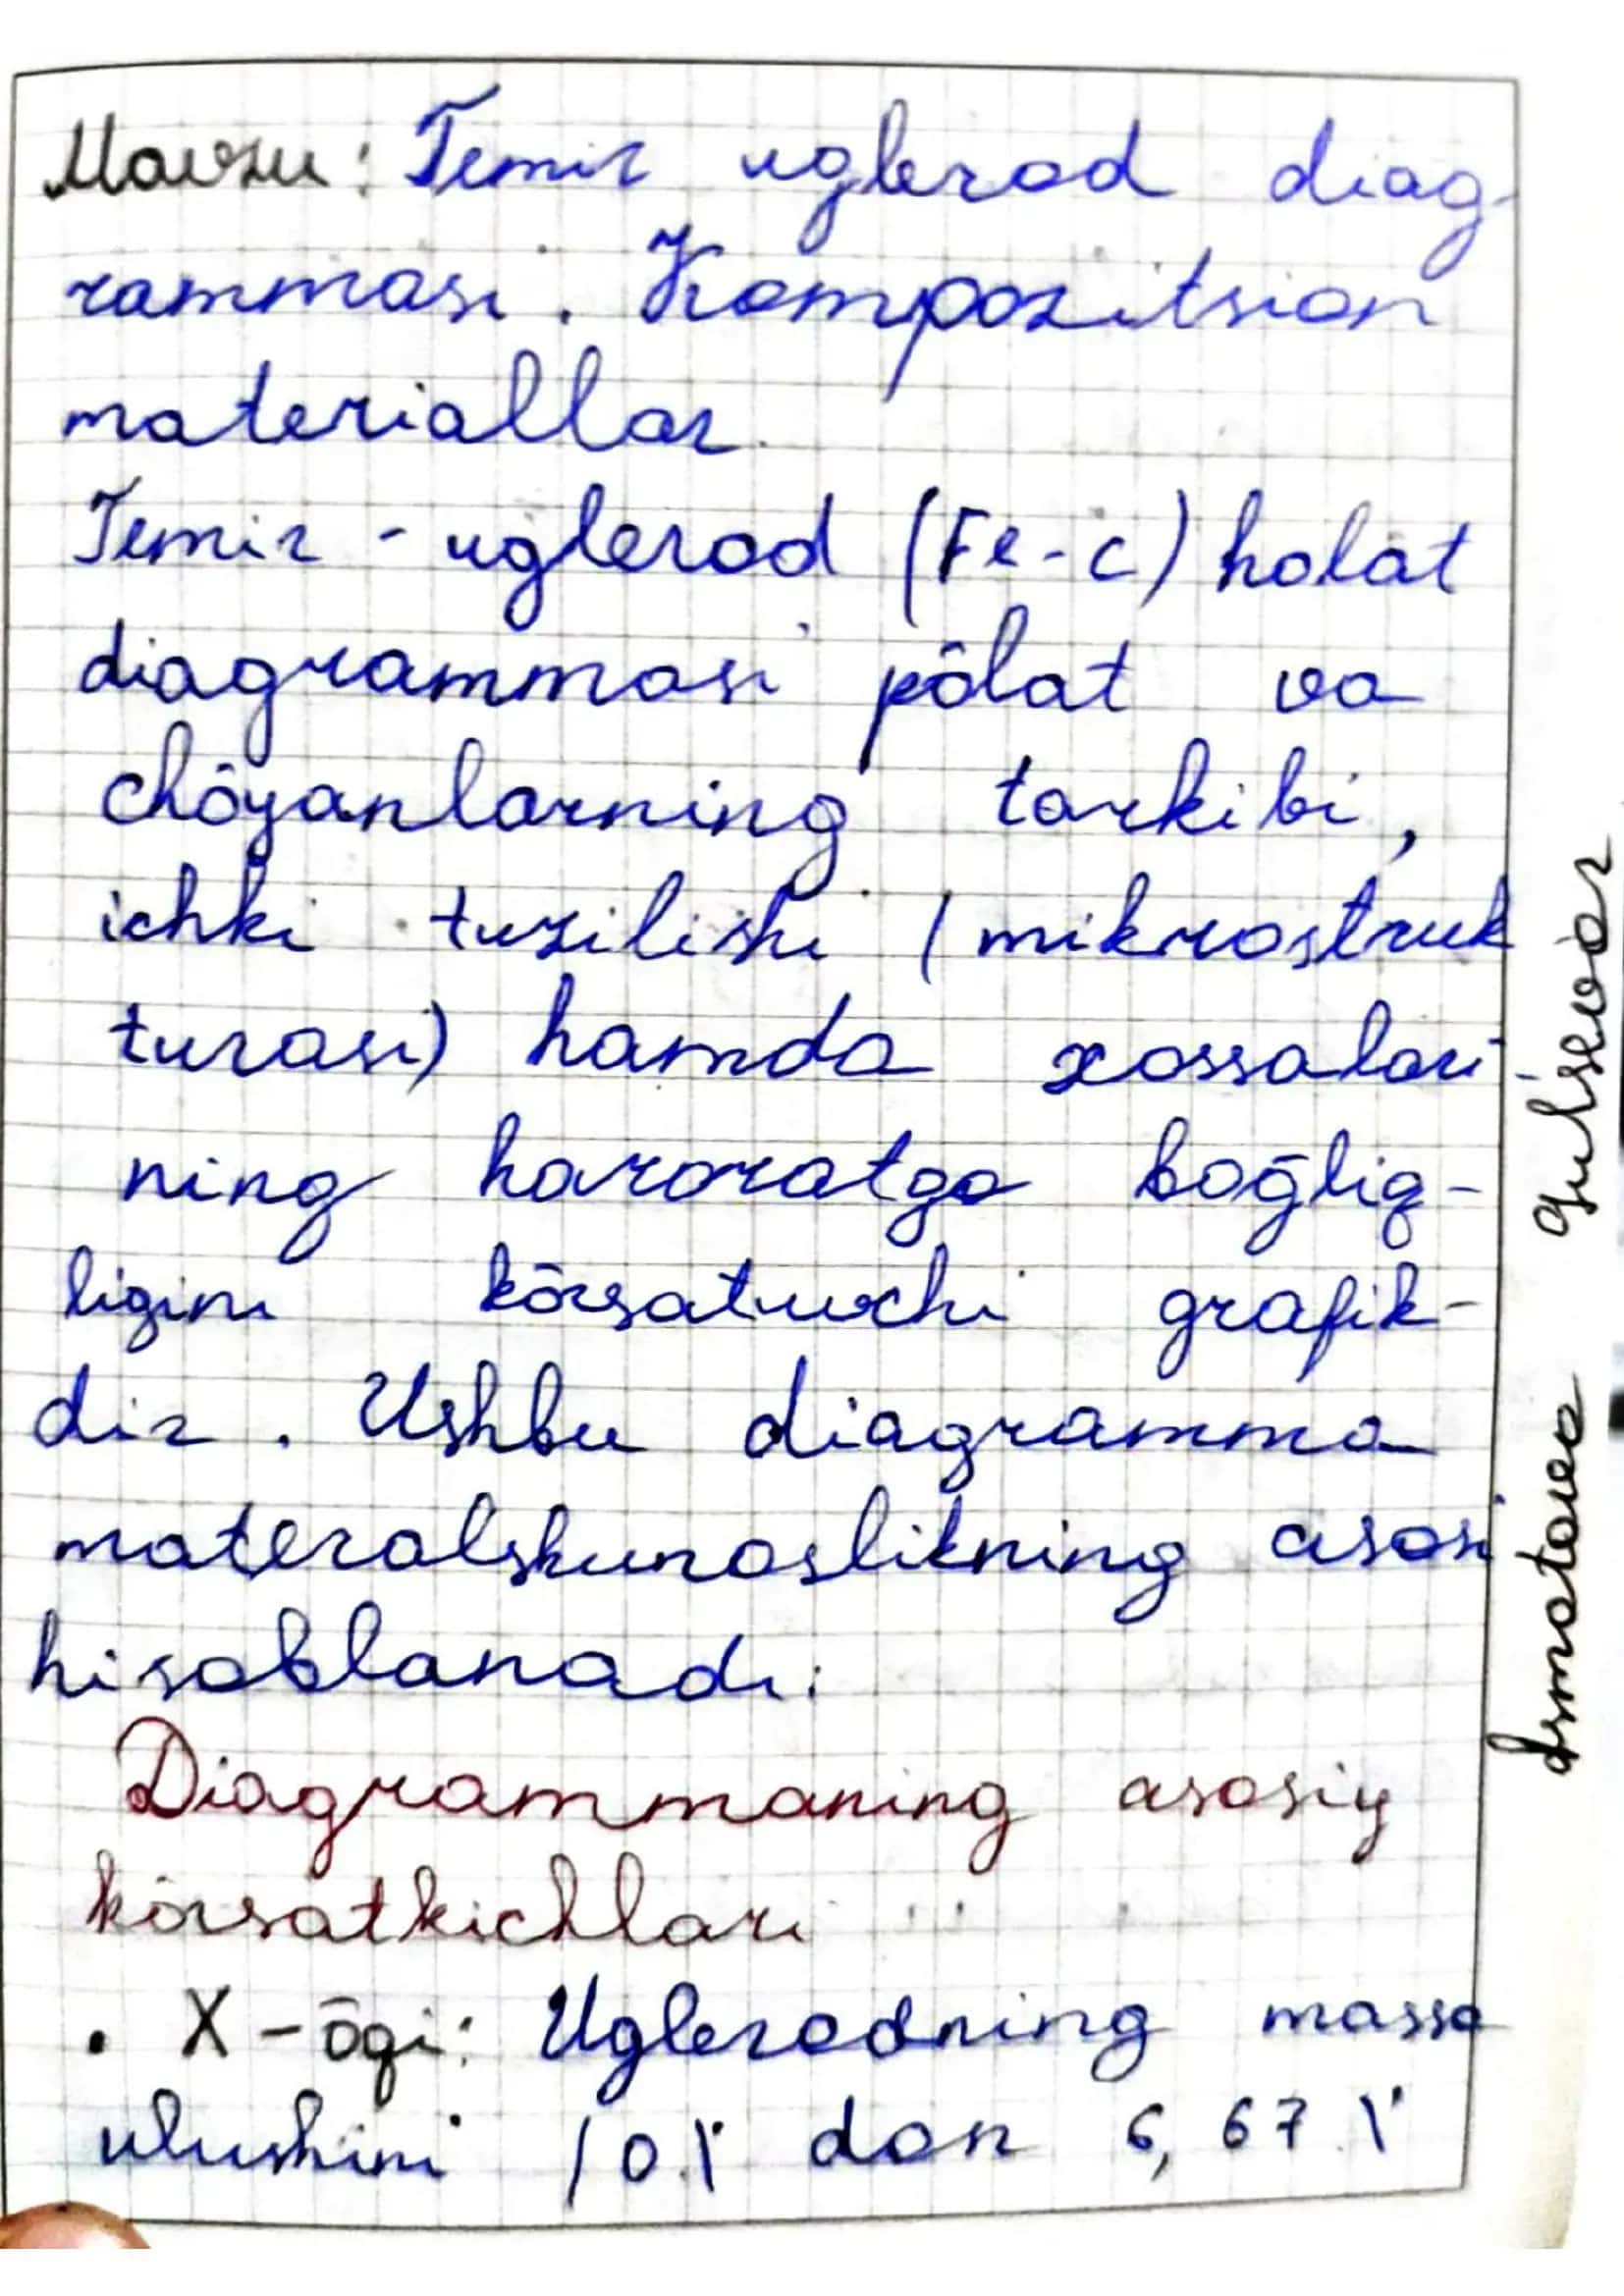 Mavzu: Temir uglerod diag-
rammasi. Kompozitsion
materiallar.
Temir - uglerod (Fe-C) holat
diagrammasi põlat va
chõyanlarning tarkibi,
ichki tuzilishi (mikrostruk
turasi) hamda xossalari-
ning haroratga bogʻliq-
ligini kõrsatuvchi grafik-
dir. Ushbu diagramma
materalshunoslikning asosi
hisoblanadi:
Diagrammaning asosiy
kõrsatkichlari
• X-õqi: Uglerodning massa
ulushini (0% dan 6,67%
Ismatova Gulsevar